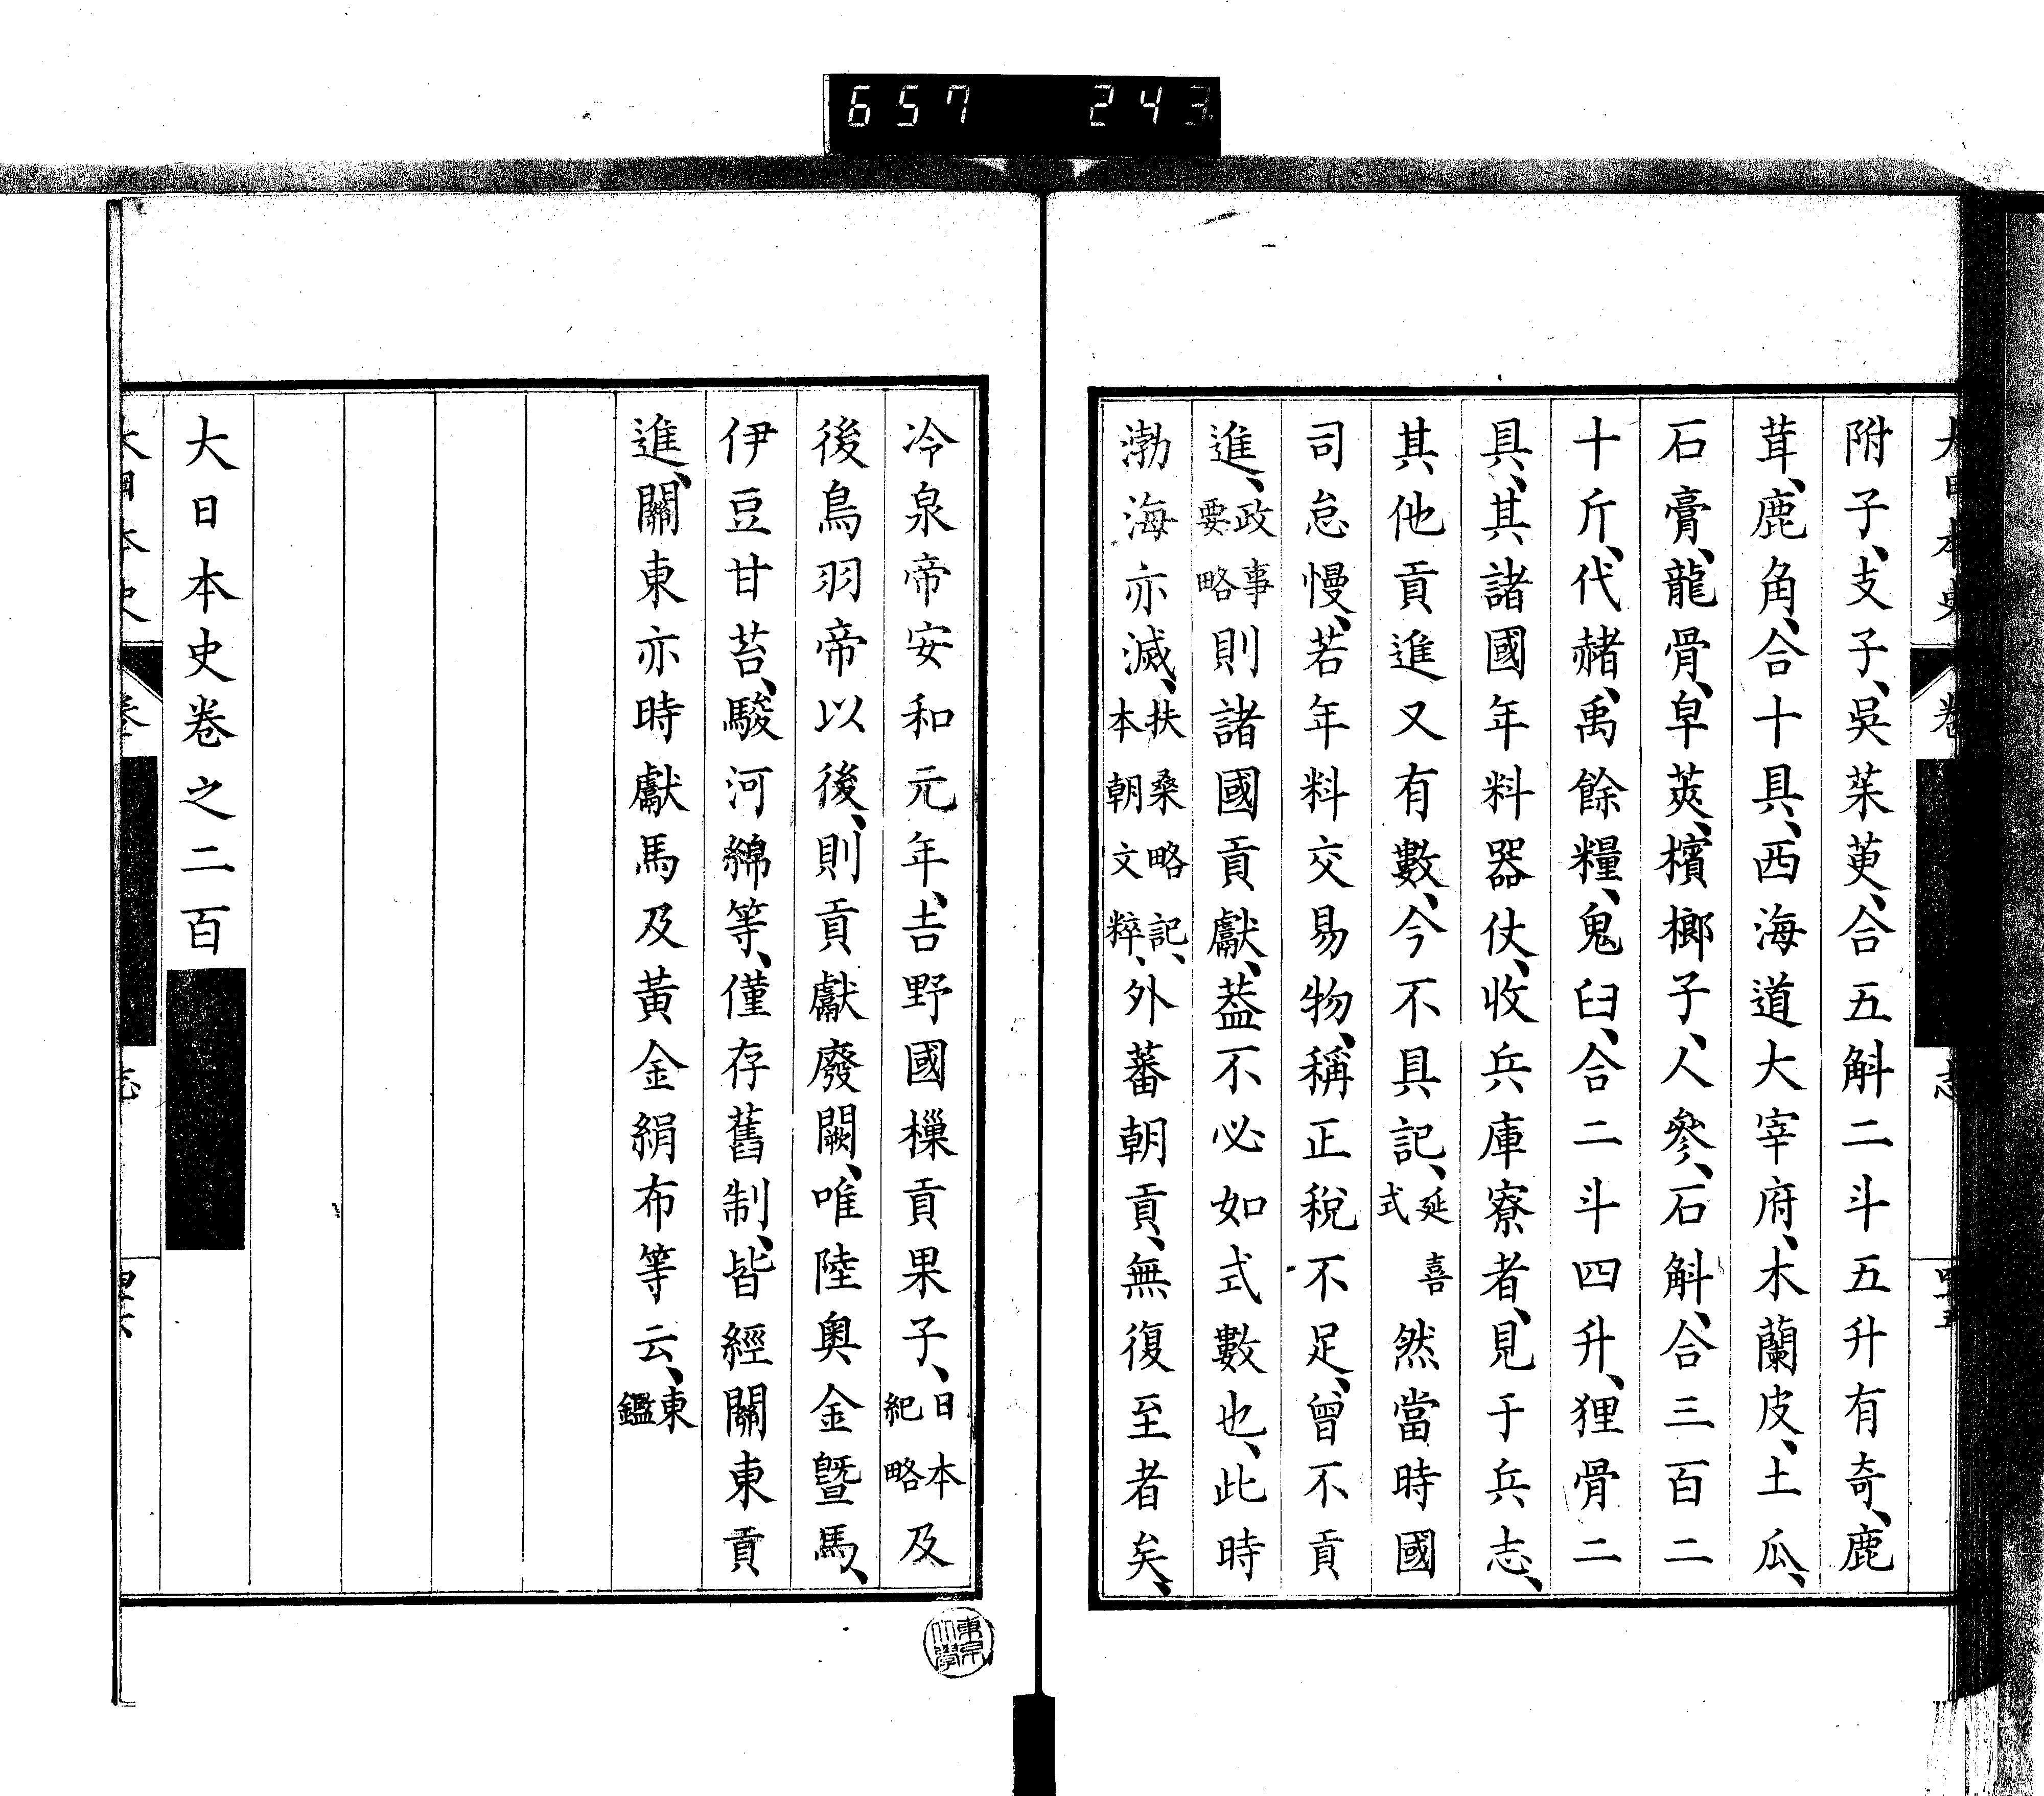 657 243
附子、支子、吳茱萸、合五斛二斗五升有奇、鹿
茸、鹿角、合十具、西海道大宰府、木蘭皮、土瓜、
石膏、龍骨、皁莢、檳榔子、人參、石斛、合三百二
十斤、代赭、禹餘糧、鬼臼、合二斗四升、狸骨二
具、其諸國年料器仗、收兵庫寮者、見于兵志、
其他貢進又有數、今不具記、延喜式然當時國
司怠慢、若年料交易物、稱正稅不足、曾不貢
進、政事要略則諸國貢獻、蓋不必如式數也、此時
渤海亦滅、扶桑略記、本朝文粹、外蕃朝貢、無復至者矣、
冷泉帝安和元年、吉野國樔貢果子、日本紀略及
後鳥羽帝以後、則貢獻廢闕、唯陸奧金暨馬、
伊豆甘苔、駿河綿等、僅存舊制、皆經關東貢
進、關東亦時獻馬及黃金絹布等云、東鑑
大日本史卷之二百
大日本史 卷 志